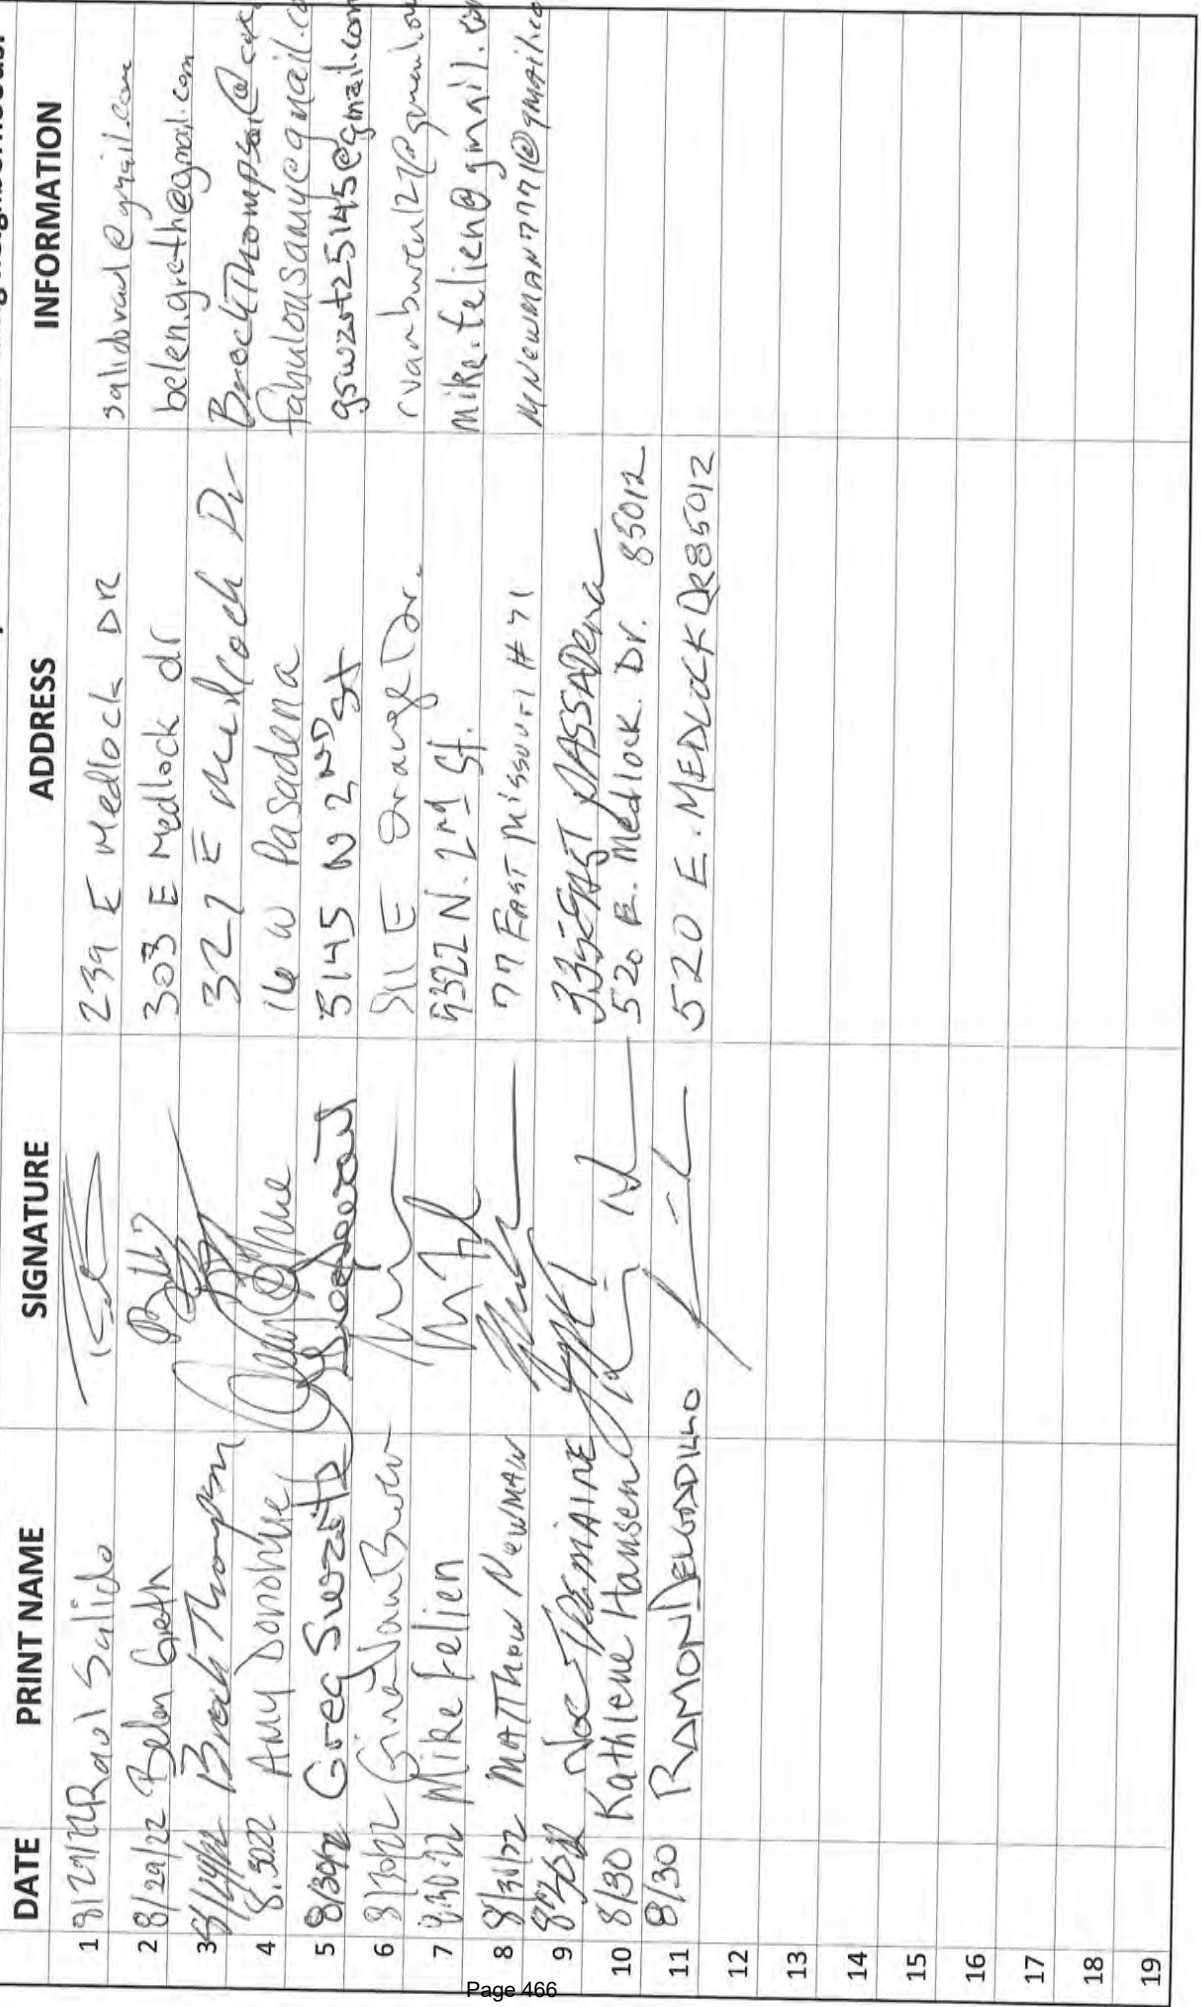 DATE PRINT NAME SIGNATURE ADDRESS INFORMATION
1 8/29/22 Raul Salido 239 E Medlock DR salidoraul@gmail.com
2 8/29/22 Belen Greth 303 E Medlock dr belen.greth@gmail.com
3 Brock Thompson 322 E Dr
4 8.3022 Amy Donohue 16 W Pasadena fabulousamy@gmail.co
5 8/30/22 Greg Swartz 5145 N 2ND St gswzrt25145@gmail.com
6 8/30/22 Gina VanBuren 511 E Orange Dr.
7 8.30.22 Mike Felien 5322 N. 2nd St. mike.felien@gmail.
8 8/30/22 MATThew NewMAN 77 EAST Missouri # 71 MNewMAN7771@gmail.co
9 EAST PASSADena
10 8/30 Kathlene Hansen 520 E. Medlock. Dr. 85012
11 8/30 RAMON DELGADILLO 520 E. MEDLOCK DR 85012
12
13
14
15
16
17
18
19
Page 466